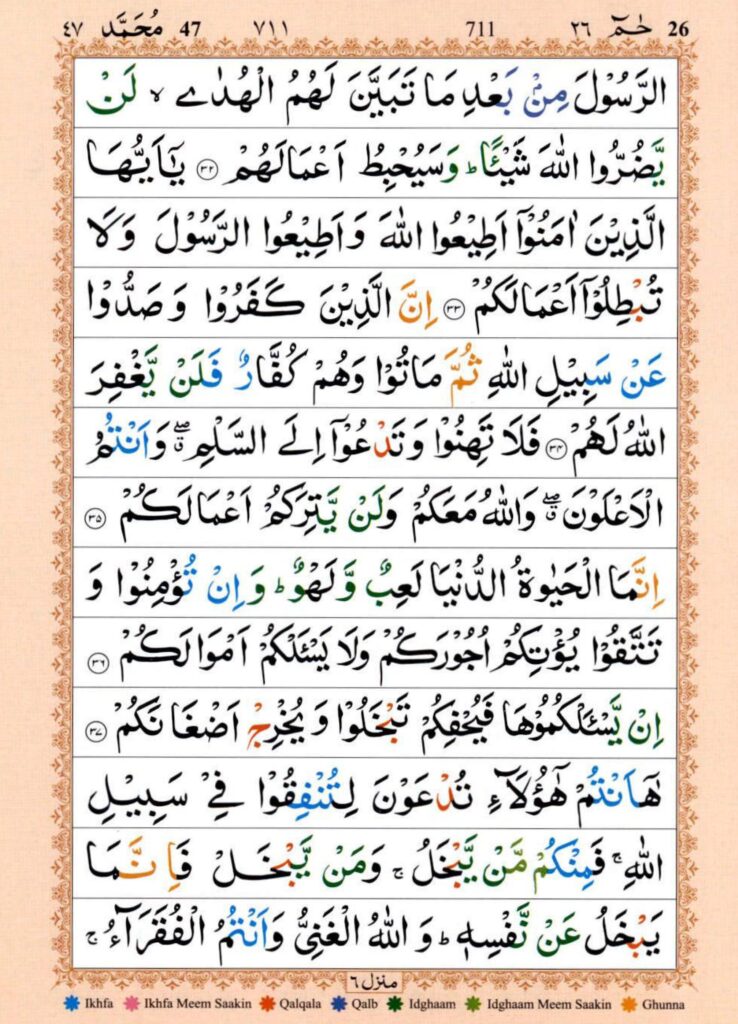 ٤٧ مُحَمَّد 47 ٧١١ 711 ٢٦ حٰمٓ 26
الرَّسُوْلَ مِنْۢ بَعْدِ مَا تَبَيَّنَ لَهُمُ الْهُدٰى ۙ لَنْ
يَّضُرُّوا اللّٰهَ شَيْـًٔا ؕ وَسَيُحْبِطُ اَعْمَالَهُمْ ﴿۳۲﴾ يٰۤاَيُّهَا
الَّذِيْنَ اٰمَنُوْۤا اَطِيْعُوا اللّٰهَ وَاَطِيْعُوا الرَّسُوْلَ وَلَا
تُبْطِلُوْۤا اَعْمَالَكُمْ ﴿۳۳﴾ اِنَّ الَّذِيْنَ كَفَرُوْا وَصَدُّوْا
عَنْ سَبِيْلِ اللّٰهِ ثُمَّ مَاتُوْا وَهُمْ كُفَّارٌ فَلَنْ يَّغْفِرَ
اللّٰهُ لَهُمْ ﴿۳۴﴾ فَلَا تَهِنُوْا وَتَدْعُوْۤا اِلَى السَّلْمِ ۖۗ وَاَنْتُمُ
الْاَعْلَوْنَ ۖۗ وَاللّٰهُ مَعَكُمْ وَلَنْ يَّتِرَكُمْ اَعْمَالَكُمْ ﴿۳۵﴾
اِنَّمَا الْحَيٰوةُ الدُّنْيَا لَعِبٌ وَّلَهْوٌ ؕ وَاِنْ تُؤْمِنُوْا وَ
تَتَّقُوْا يُؤْتِكُمْ اُجُوْرَكُمْ وَلَا يَسْـَٔلْكُمْ اَمْوَالَكُمْ ﴿۳۶﴾
اِنْ يَّسْـَٔلْكُمُوْهَا فَيُحْفِكُمْ تَبْخَلُوْا وَيُخْرِجْ اَضْغَانَكُمْ ﴿۳۷﴾
هٰۤاَنْتُمْ هٰۤؤُلَآءِ تُدْعَوْنَ لِتُنْفِقُوْا فِيْ سَبِيْلِ
اللّٰهِ ۚ فَمِنْكُمْ مَّنْ يَّبْخَلُ ۚ وَمَنْ يَّبْخَلْ فَاِنَّمَا
يَبْخَلُ عَنْ نَّفْسِهٖ ؕ وَاللّٰهُ الْغَنِيُّ وَاَنْتُمُ الْفُقَرَآءُ ۚ
منزل ٦
Ikhfa Ikhfa Meem Saakin Qalqala Qalb Idghaam Idghaam Meem Saakin Ghunna